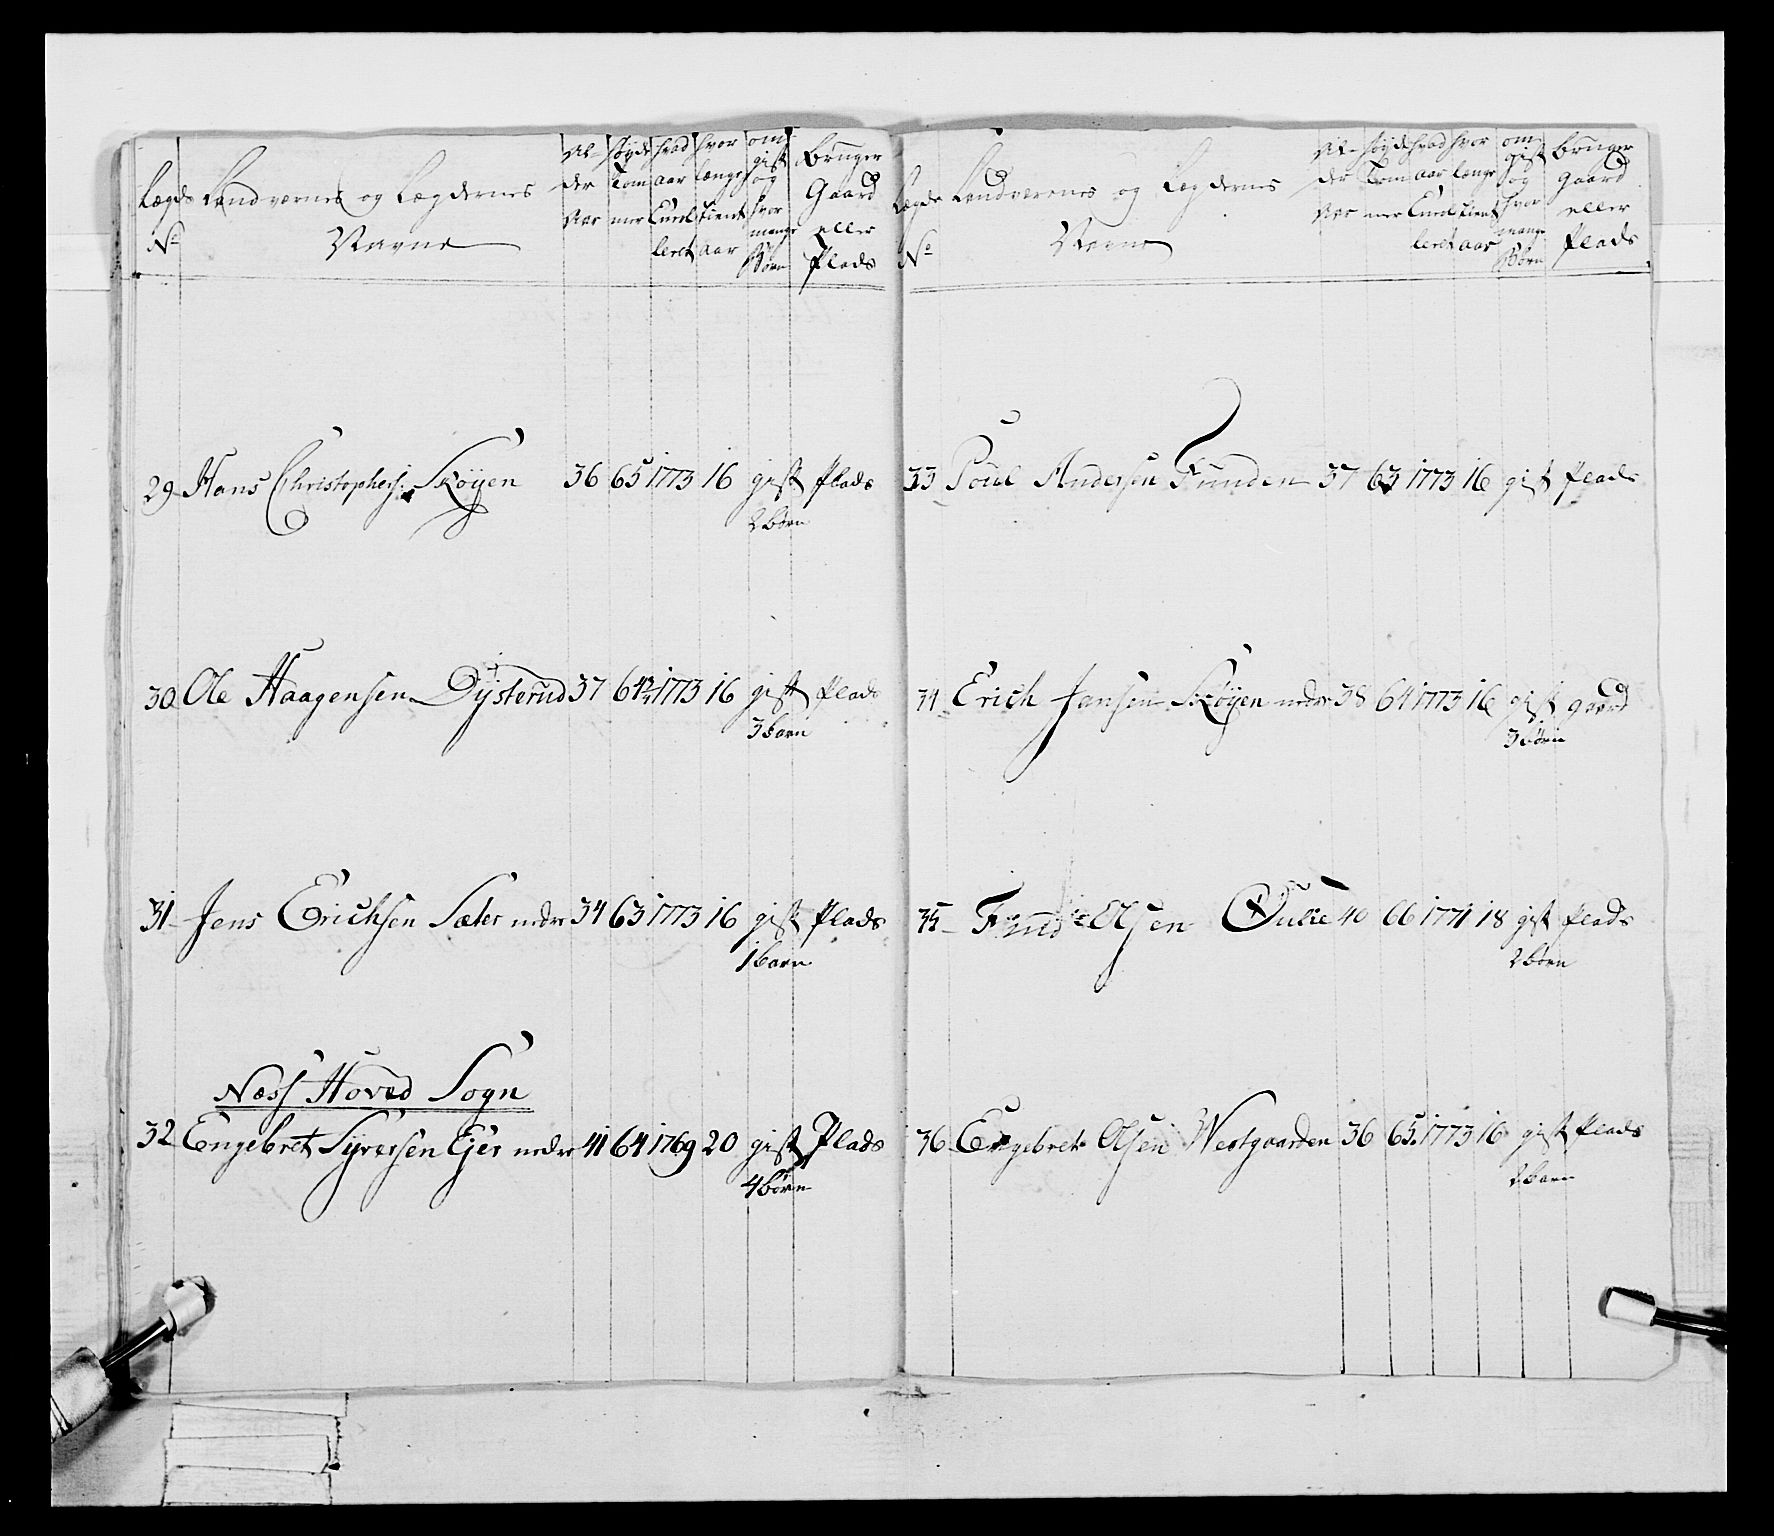 Lægds Landværnes og Lægdernes Al- høyde hvad hvor om Bruger
No Navne der Tom aar længe gift og Gaard
Aar mer Enrol tient hvor mange eller
leret aar Børn Plads
29 Hans Christophers: Skøyen 36 65 1773 16 gift Plads
2 børn
30 Ole Haagensen Dysterud 37 64½ 1773 16 gift Plads
3 barn
31 Jens Erichsen Sæter nedre 34 63 1773 16 gift Plads
1 barn
Næss Hoved Sogn
32 Engebret Syversen Ejer nedre 41 64 1769 20 gift Plads
4 børn
Lægds Landværnes og Lægdernes Al- høyde hvad hvor om Bruger
No Navne der Tom aar længe gift og Gaard
Aar mer Enrol tient hvor mange eller
leret aar Børn Plads
33 Poul Andersen Funden 37 63 1773 16 gift Plads
34 Erich Jansen Skøyen nedre 38 64 1773 16 gift gaard
3 børn
35 Olsen 40 66 1771 18 gift Plads
2 børn
36 Engebret Olsen Westgaarden 36 65 1773 16 gift Plads
2 barn